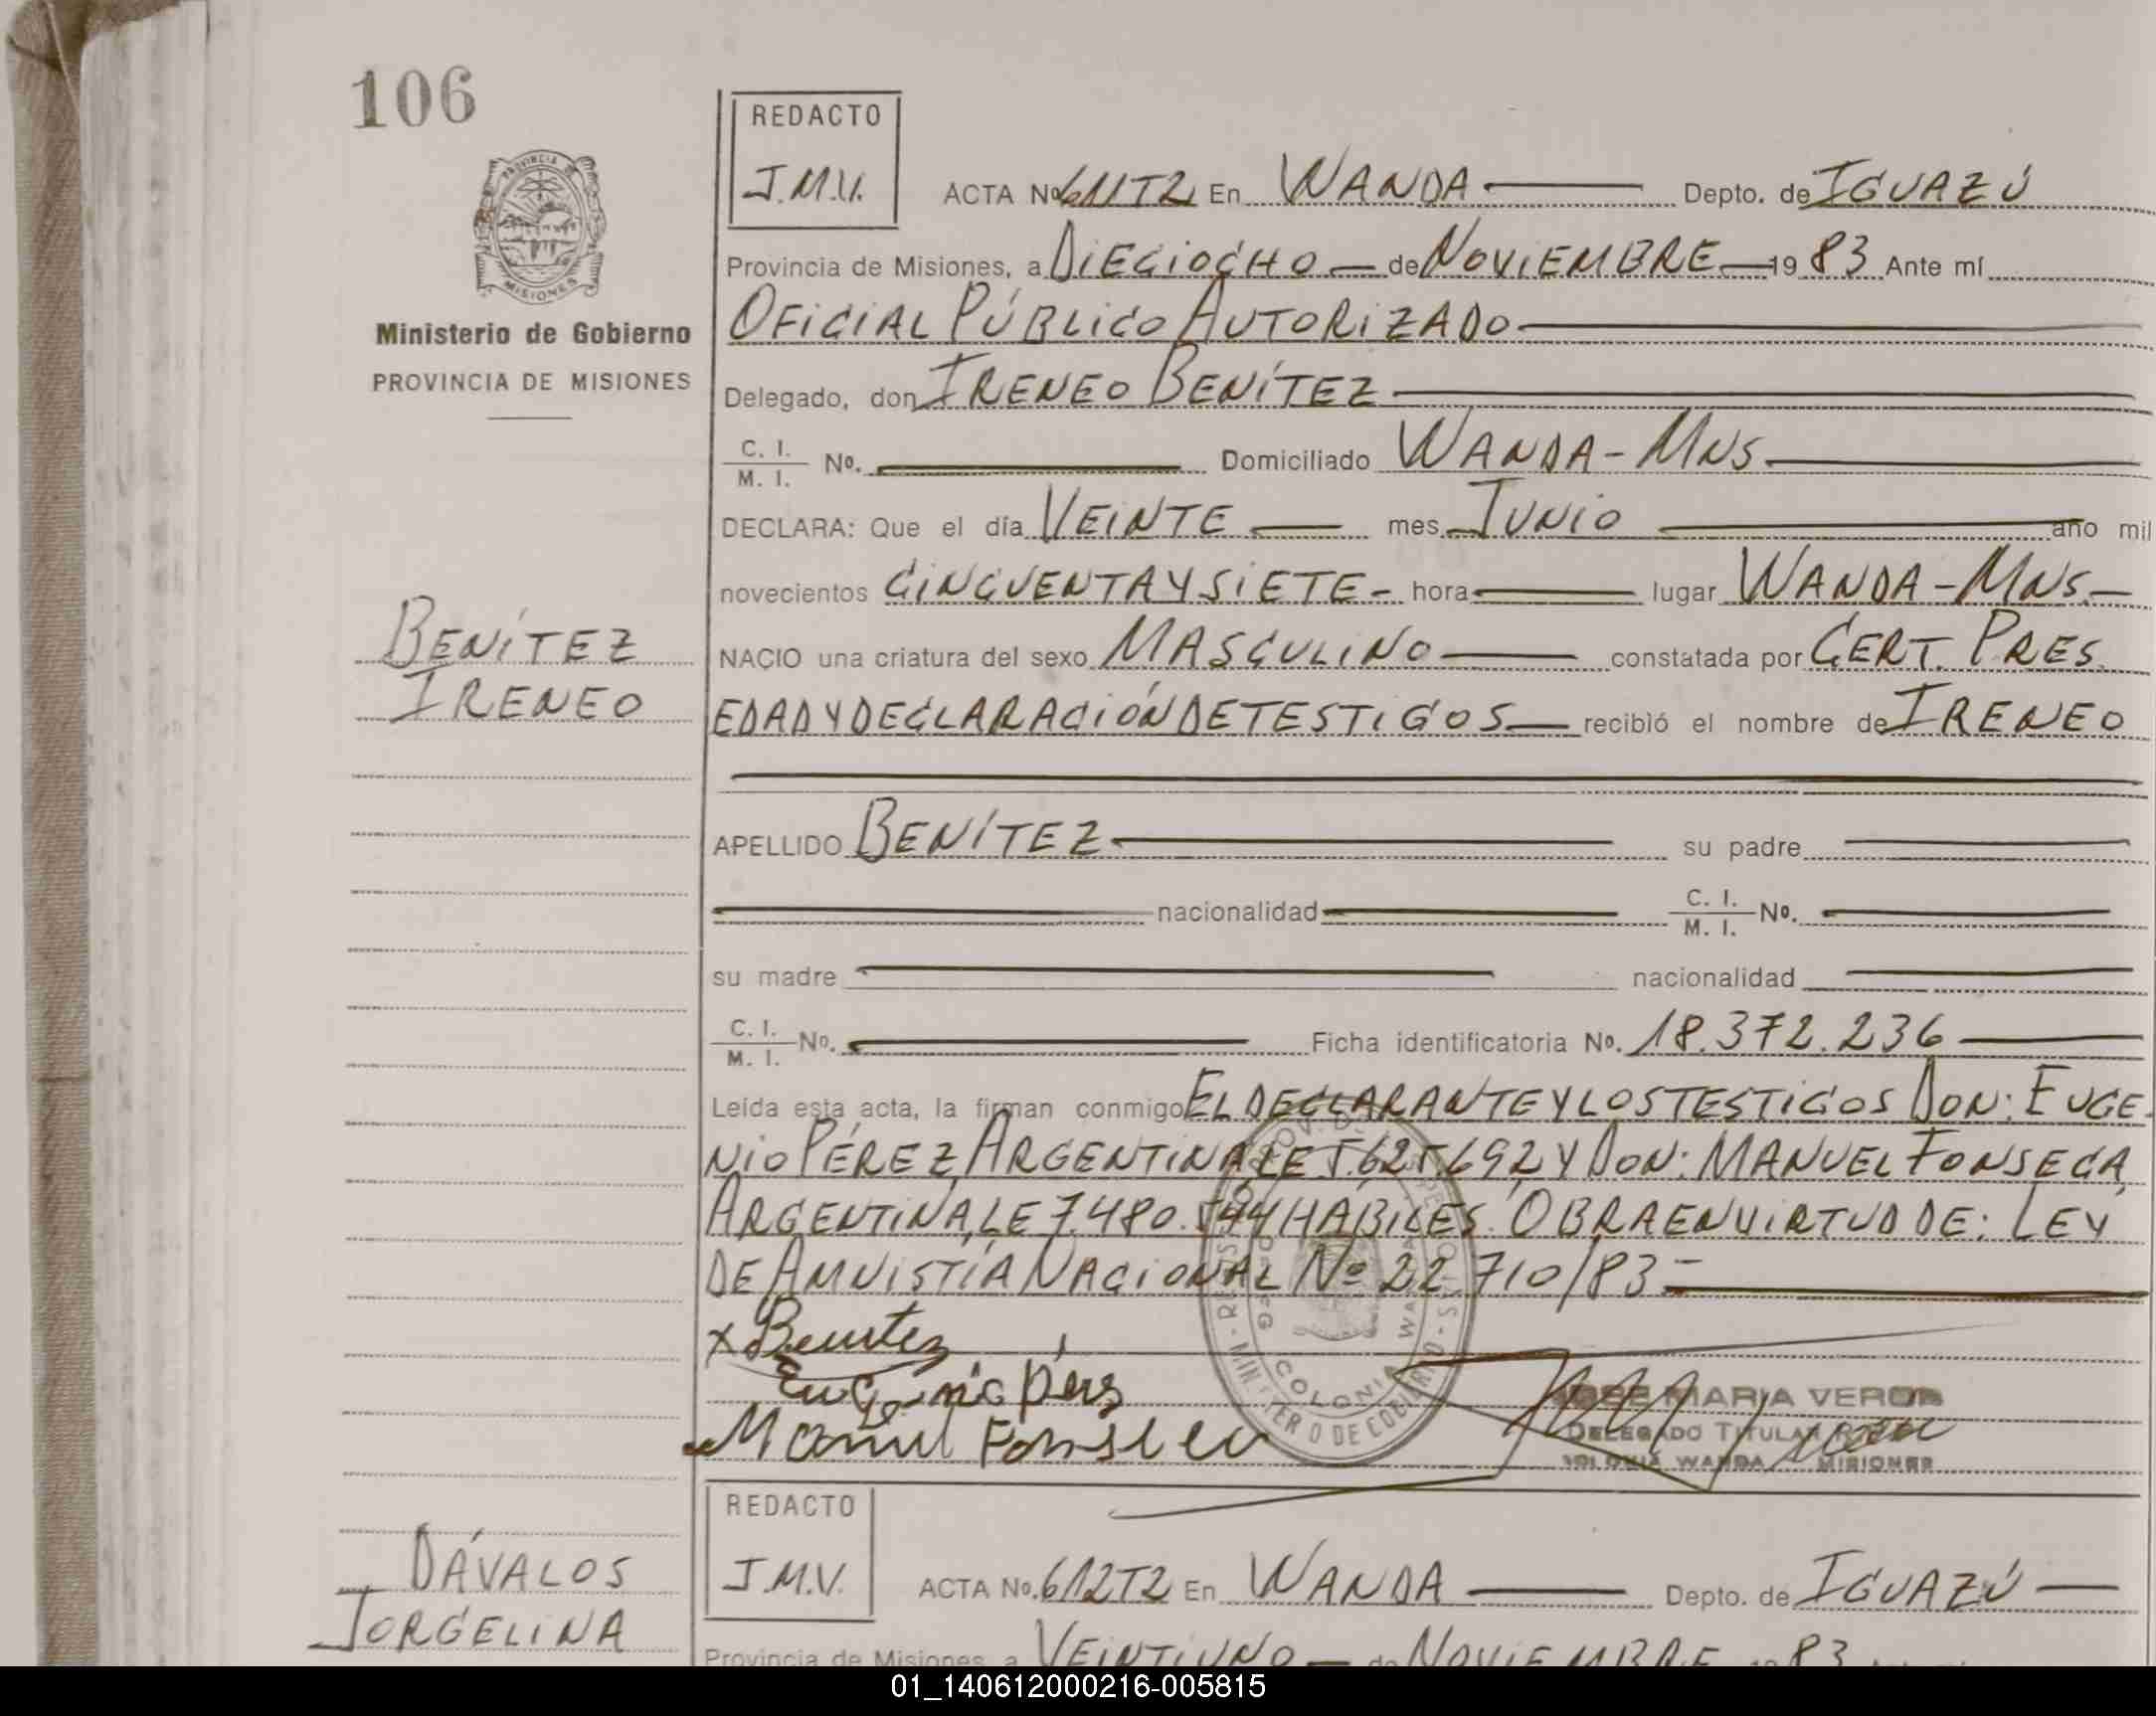 106
REDACTO
J.M.V.
ACTA No 611T2 En WANDA Depto. de IGUAZÚ
PROVINCIA
MISIONES
Provincia de Misiones, a DIECIOCHO de NOVIEMBRE 19 83 Ante mí
Ministerio de Gobierno
OFICIAL PÚBLICO AUTORIZADO
PROVINCIA DE MISIONES
Delegado, don IRENEO BENÍTEZ
C. I.
M. I. No. Domiciliado WANDA-MNS
DECLARA: Que el día VEINTE mes JUNIO año mil
novecientos CINCUENTA Y SIETE - hora lugar WANDA-MNS.-
BENÍTEZ
NACIO una criatura del sexo MASCULINO constatada por CERT. PRES.
IRENEO
EDAD Y DECLARACIÓN DE TESTIGOS recibió el nombre de IRENEO
APELLIDO BENÍTEZ su padre
nacionalidad C. I.
M. I. No.
su madre nacionalidad
C. I.
M. I. No. Ficha identificatoria No. 18.372.236
Leída esta acta, la firman conmigo EL DECLARANTE Y LOS TESTIGOS DON: EUGE-
NIO PÉREZ, ARGENTINA, LE 5.625.692, Y DON: MANUEL FONSECA,
ARGENTINA, LE 7.480.544 HABILES. OBRA EN VIRTUD DE: LEY
DE AMNISTÍA NACIONAL Nº 22.710/83-
x Benitez
Eugenio
Manuel Fonseca
COLONIA WANDA
MINISTERIO DE GOBIERNO
JOSE MARIA VERON
DELEGADO TITULAR
COLONIA WANDA MISIONES
REDACTO
J.M.V.
DÁVALOS
ACTA No. 612T2 En WANDA Depto. de IGUAZÚ
JORGELINA
Provincia de Misiones, a VEINTIUNO de NOVIEMBRE 19 83
01_140612000216-005815